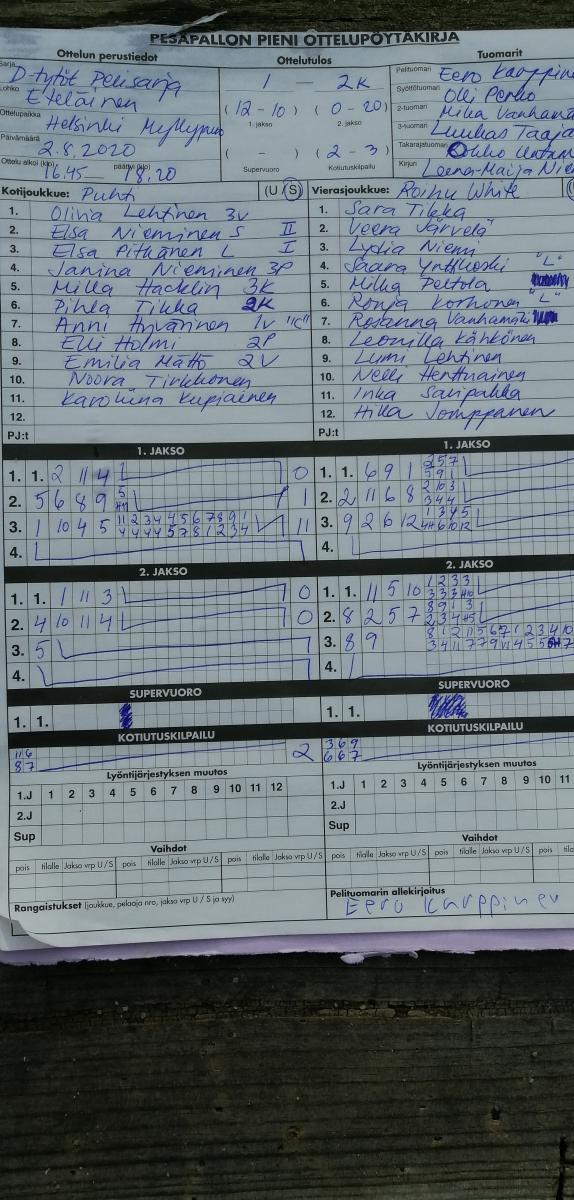 PESÄPALLON PIENI OTTELUPÖYTÄKIRJA
Ottelun perustiedot
Ottelutulos
Tuomarit
Sarja
D-tytöt Pelisarja
Lohko
Eteläinen
Ottelupaikka
Helsinki Myllypuro
Päivämäärä
2.8.2020
Ottelu alkoi (klo) 16.45 päättyi (klo) 18.20
1 - 2K
(12 - 10) (0 - 20)
1. jakso 2. jakso
( - ) (2 - 3)
Supervuoro Kotiutuskilpailu
Pelituomari Eero Karppine
Syöttötuomari Olli Perko
2-tuomari Mika Vanhamä
3-tuomari Luukas Taaja
Takarajatuomari
Kirjuri Leena-Maija Nie
Kotijoukkue: Puhti (U / S)
1. Olivia Lehtinen 3V
2. Elsa Nieminen S II
3. Elsa Pitkänen L I
4. Janina Nieminen 3P
5. Milla Hacklin 3K
6. Pihla Tikka 2K
7. Anni Hyvärinen 1V "C"
8. Elli Holmi 2P
9. Emilia Mättö 2V
10. Noora Tirkkonen
11. Karoliina Kupiainen
12.
PJ:t
Vierasjoukkue: Roihu White
1. Sara Tikka
2. Veera Järvelä
3. Lydia Niemi
4. Saara "L"
5. Milka Peltola
6. Ronja Korhonen "L"
7. Rosanna Vanhamäki
8. Leonilla Kähkönen
9. Lumi Lehtinen
10. Nelli Henttuainen
11. Inka Saripakka
12. Hilla Jomppanen
PJ:t
1. JAKSO
1. 1. 2 11 4 0
2. 5 6 8 9 1
3. 1 10 4 5 11
4.
1. JAKSO
1. 1. 6 9 1
2. 2 11 6 8
3. 9 2 6 12
4.
2. JAKSO
1. 1. 1 11 3 0
2. 4 10 11 4 0
3. 5
4.
2. JAKSO
1. 1. 11 5 10
2. 8 2 5 7
3. 8 9
4. 1
SUPERVUORO
1. 1.
SUPERVUORO
1. 1.
KOTIUTUSKILPAILU
11 6
8 7
2
KOTIUTUSKILPAILU
3 6 9
6 6 7
Lyöntijärjestyksen muutos
1.J 1 2 3 4 5 6 7 8 9 10 11 12
2.J
Sup
Lyöntijärjestyksen muutos
1.J 1 2 3 4 5 6 7 8 9 10 11
2.J
Sup
Vaihdot
pois tilalle Jakso vrp U / S pois tilalle Jakso vrp U / S pois tilalle Jakso vrp U / S
Vaihdot
pois tilalle Jakso vrp U / S pois tilalle Jakso vrp U / S pois tilalle
Rangaistukset (joukkue, pelaaja nro, jakso vrp U / S ja syy)
Pelituomarin allekirjoitus
Eero Karppinen